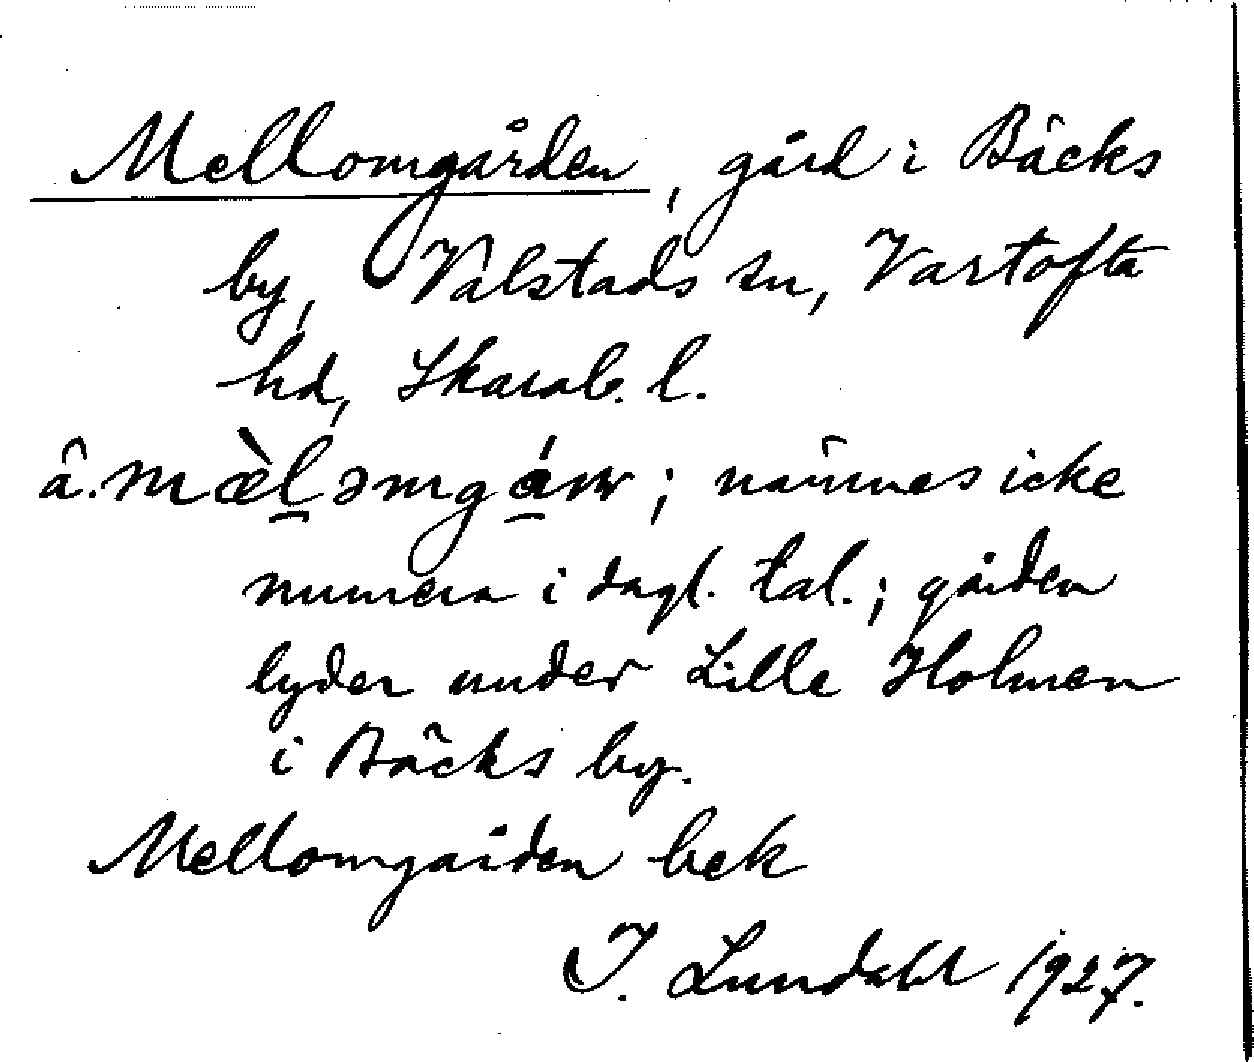 Mellomgården, gård i Bäcks
by, Valstads sn, Vartofta
hd, Skarab. l.
â. mæ̀l̠əmgá̠ṇ; nämnes icke
numera i dagl. tal.; gården
lyder under Lille Holmen
i Bäcks by.
Mellomgården bek
I. Lundahl 1927.